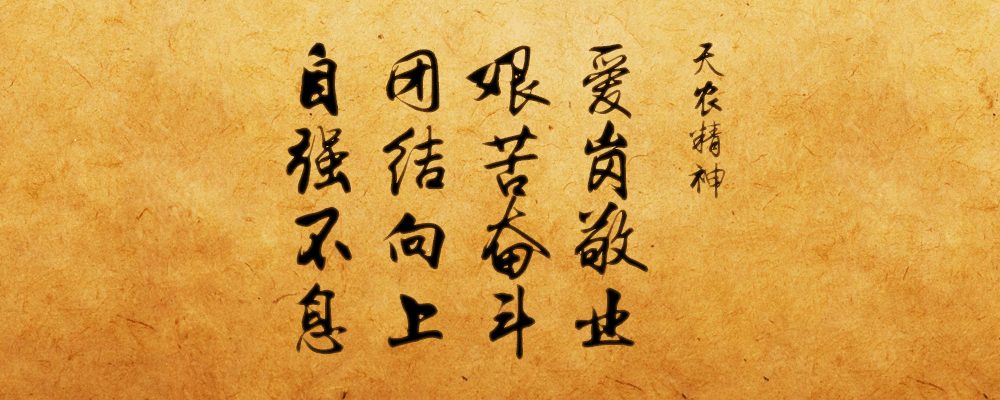 天农精神
爱岗敬业
艰苦奋斗
团结向上
自强不息